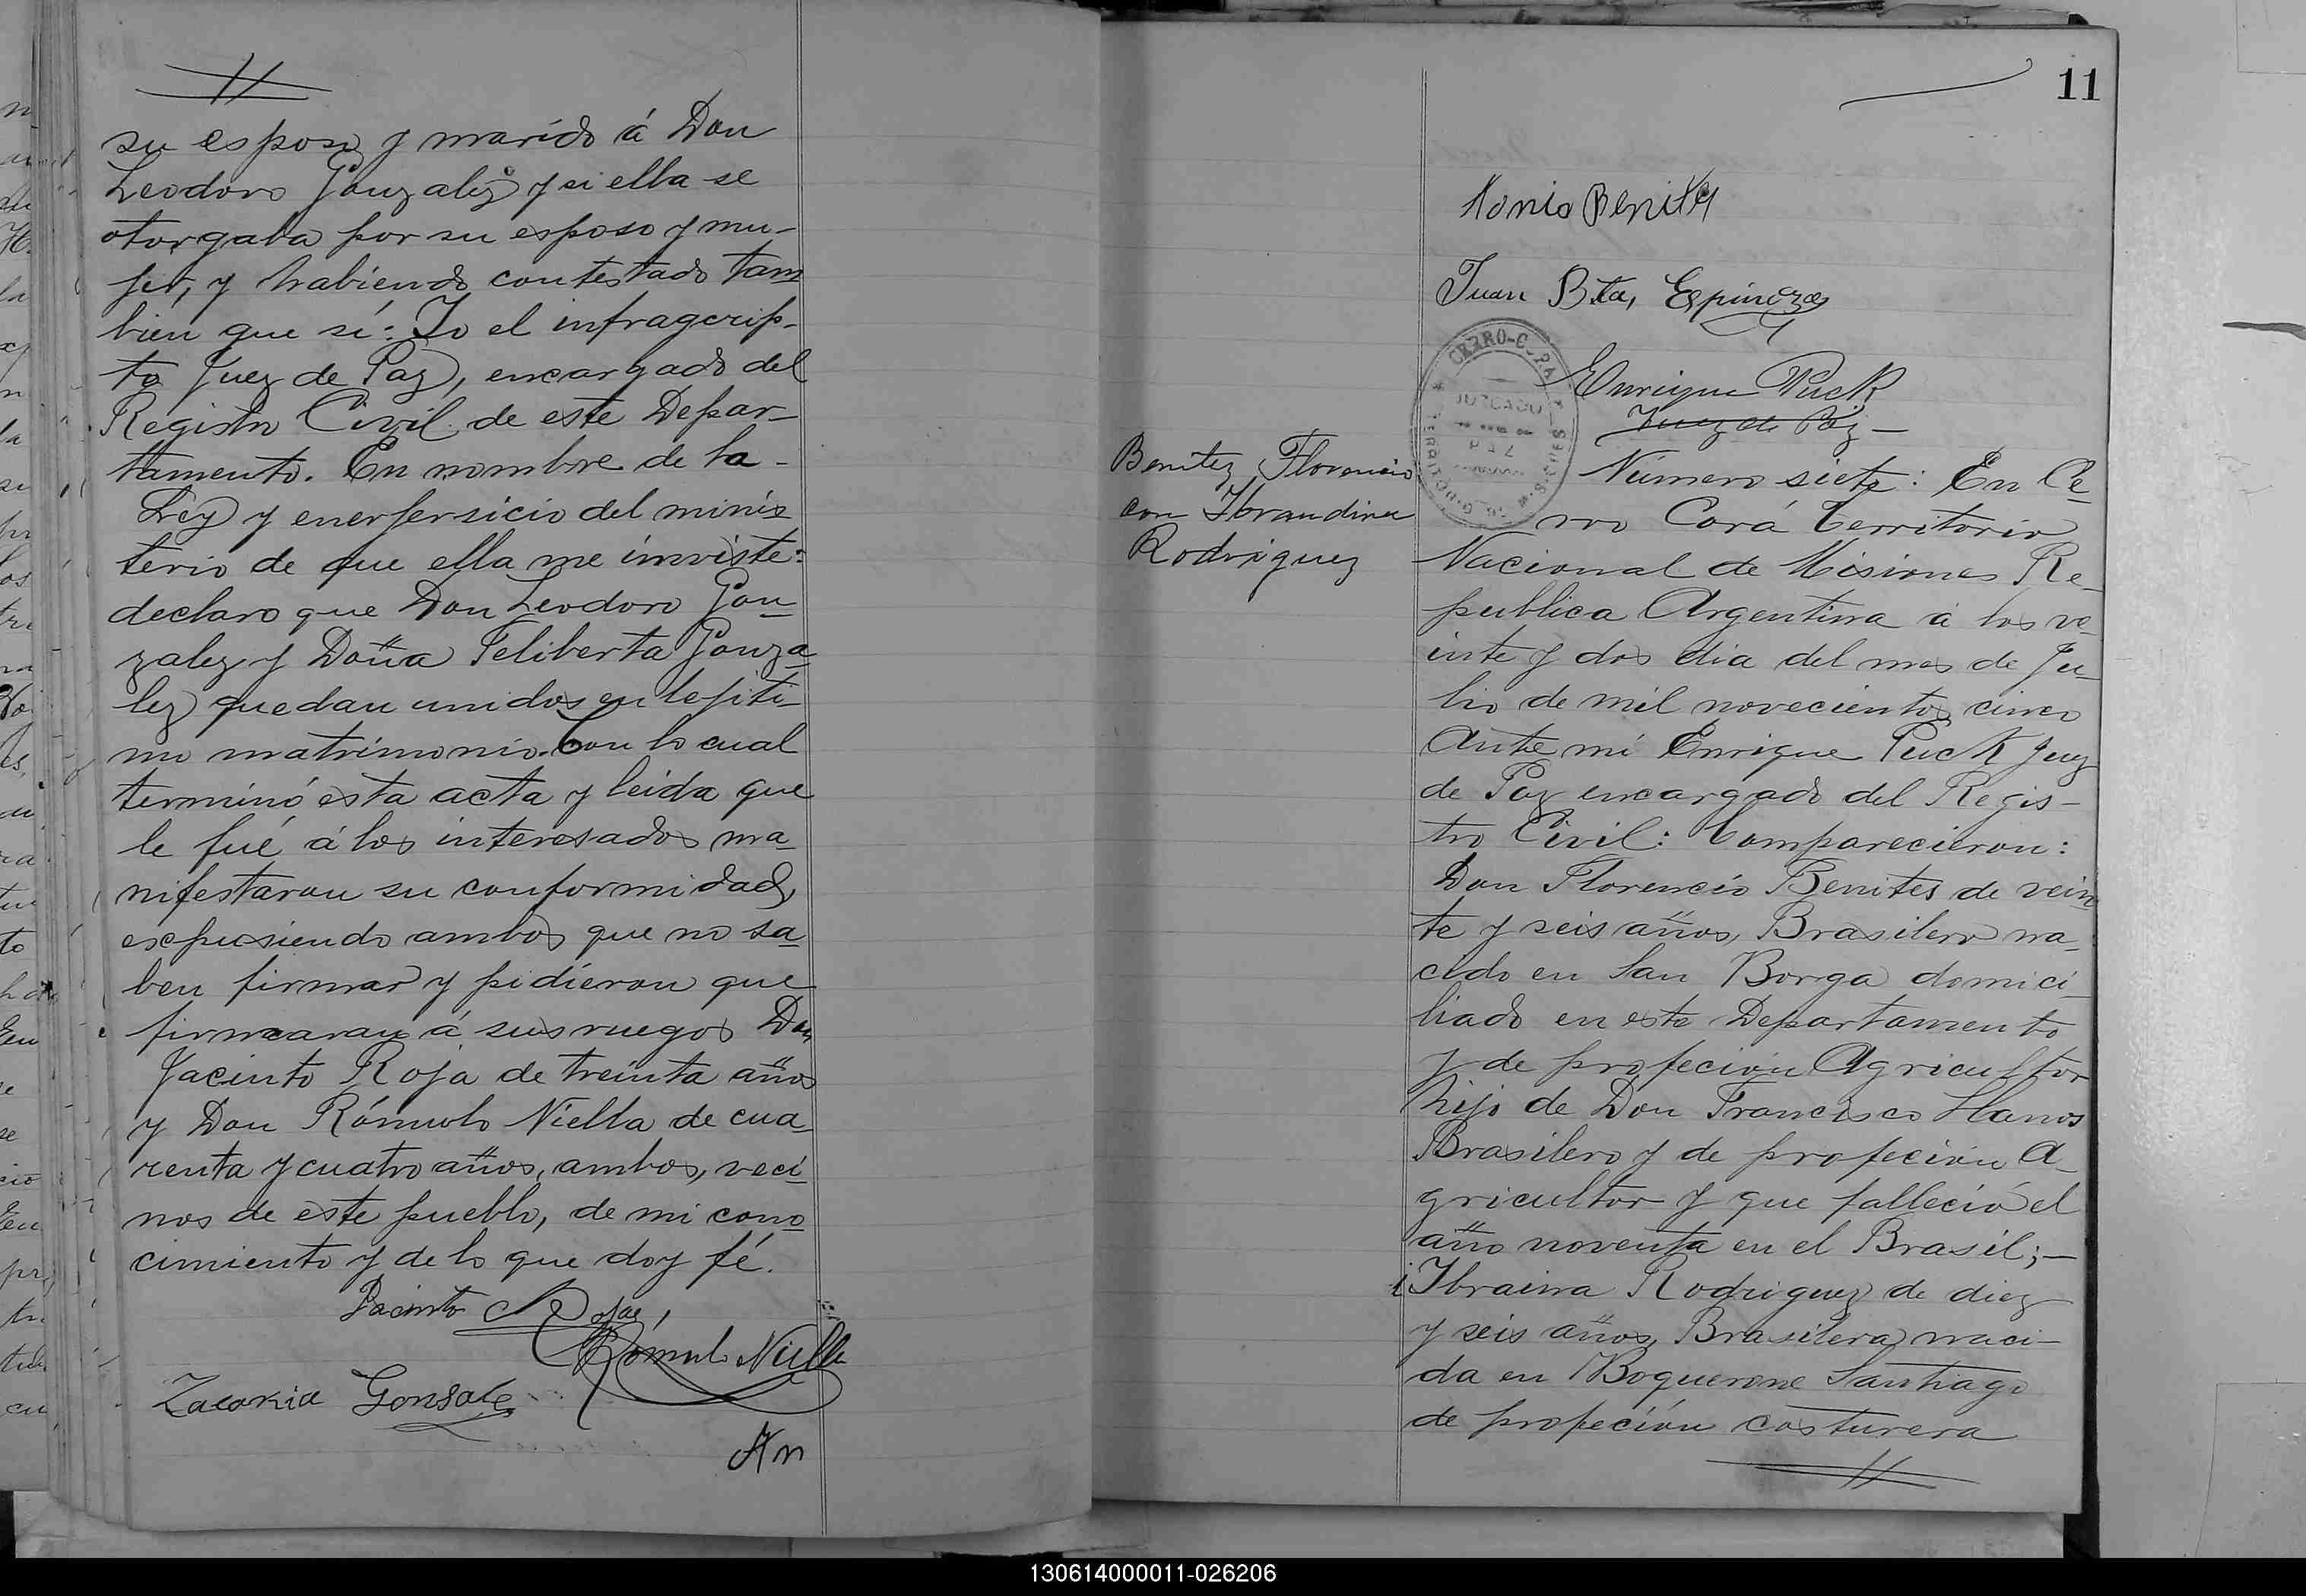 su esposo y marido á Don
Leodoro Gonzalez y si ella se
otorgaba por su esposo y mu-
jer, y habiendo contestado tam
bien que sí: Yo el infrascrip-
to Juez de Paz, encargado del
Registro Civil de este Depar-
tamento. En nombre de la -
Ley y enerjersicio del minis
terio de que ella me inviste:
declaro que Don Leodoro Gon
zalez y Doña Feliberta Gonza
lez quedan unidos en lejiti-
mo matrimonio. Con lo cual
terminó esta acta y leida que
le fué á los interesados ma
nifestaron su conformidad,
expusiendo ambos que no sa
ben firmar y pidieron que
firmaran á sus ruegos Don
Jacinto Roja de treinta años
y Don Rómulo Niella de cua
renta y cuatro años, ambos, veci
nos de este pueblo, de mi cono
cimiento y de lo que doy fé.
Jacinto Rojas,
Rómulo Niella
Zacaria Gonsale
An
11
tonio Benite
Juan Bta, Espinoza
Enrique Puck
Juez de Paz -
CERRO-CORA
JUZGADO
PAZ
Benitez Florencio
con Ibrandina
Rodriguez
Número siete: En Ce
rro Corá Territorio
Nacional de Misiones Re
publica Argentina á los ve
inte y dos dia del mes de Ju
lio de mil novecientos cinco
Ante mí Enrique Puck Juez
de Paz encargado del Regis-
tro Civil: Comparecieron:
Don Florencio Benites de vein
te y seis años, Brasilero na
cido en San Borga domici
liado en este Departamento
y de profeción Agricultor
hijo de Don Francisco Llanos
Brasilero y de profeción A-
gricultor y que falleció el
año noventa en el Brasil; -
i Ibraina Rodriguez de diez
y seis años, Brasilera naci-
da en Boquerone Santiago
de profeción costurera
130614000011-026206